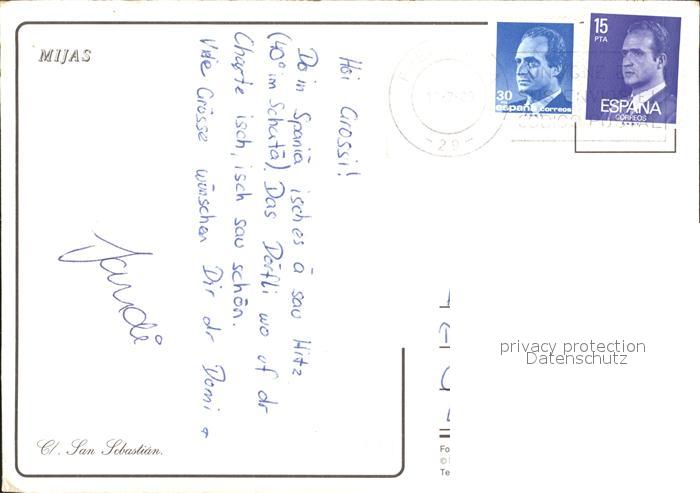 MIJAS
Hoi Grossi!
Do in Spaniä isch es ä sau Hitz
(40° im Schatä). Das Dörfli wo uf dr
Charte isch, isch sau schön.
Viele Grüsse wünschen Dir dr Domi +
C/. San Sebastián.
30
españa correos
15
PTA
ESPAÑA
CORREOS
-29-
CODIGO POSTAL
privacy protection
Datenschutz
Fo
©
Te